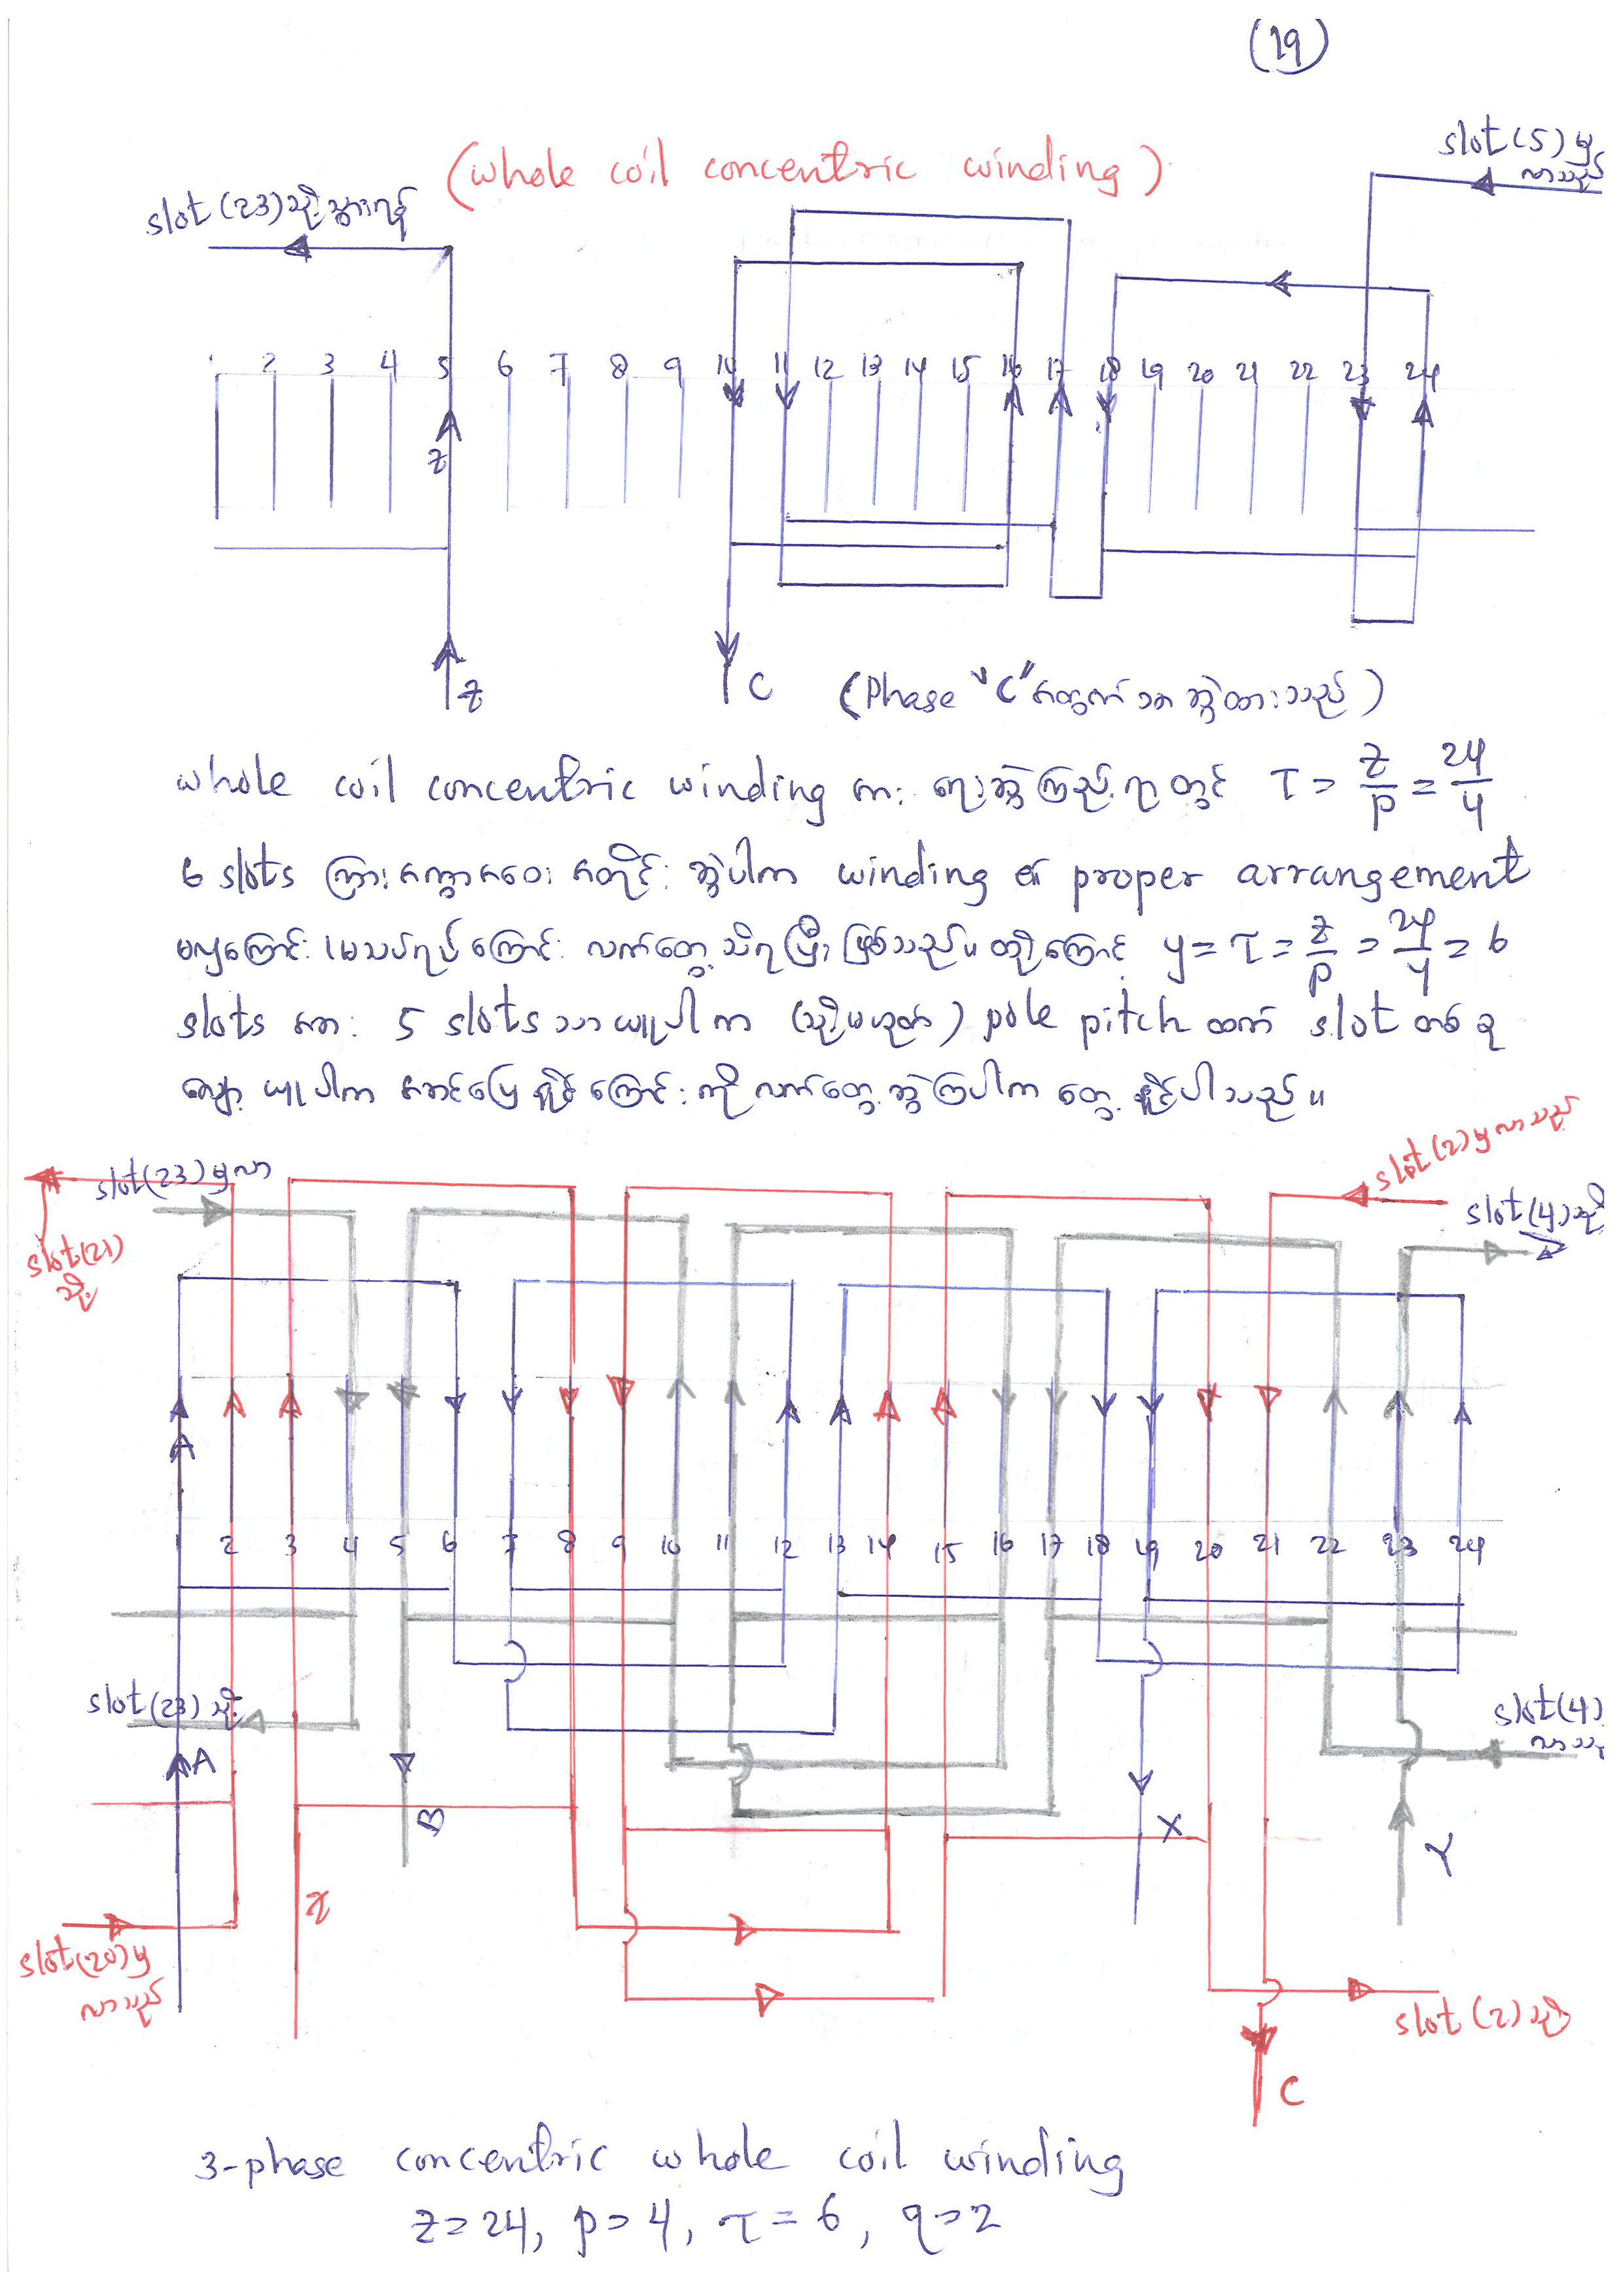 (19)
(whole coil concentric winding)
slot(5)မှ
လာသည်
slot(23)သို့
2 3 4 5 6 7 8 9 10 11 12 13 14 15 16 17 18 19 20 21 22 23 24
z
z
C
(Phase "C" အတွက်သာ ဆွဲထားသည်)
whole coil concentric winding အား ရေးဆွဲကြည့်ရာတွင် τ = z/p = 24/4
6 slots ခြားအကွာအဝေးအတိုင်း ဆွဲပါက winding ၏ proper arrangement
မကျကြောင်း၊ မသပ်ရပ်ကြောင်း လက်တွေ့သိရပြီး ဖြစ်သည်။ ထို့ကြောင့် y = τ = z/p = 24/4 = 6
slots အား 5 slots သာယူပါက (သို့မဟုတ်) pole pitch ထက် slot တစ်ခု
လျှော့ယူပါက အဆင်ပြေနိုင်ကြောင်းကို လက်တွေ့ဆွဲကြပါက တွေ့နိုင်ပါသည်။
slot(2)မှလာသည်
slot(23)မှလာ
slot(4)သို့
slot(21)
သို့
A
1 2 3 4 5 6 7 8 9 10 11 12 13 14 15 16 17 18 19 20 21 22 23 24
slot(23)သို့
slot(4)
A
B
X
Y
z
slot(20)မှ
လာသည်
slot(2)သို့
C
3-phase concentric whole coil winding
z = 24, p = 4, τ = 6, q = 2